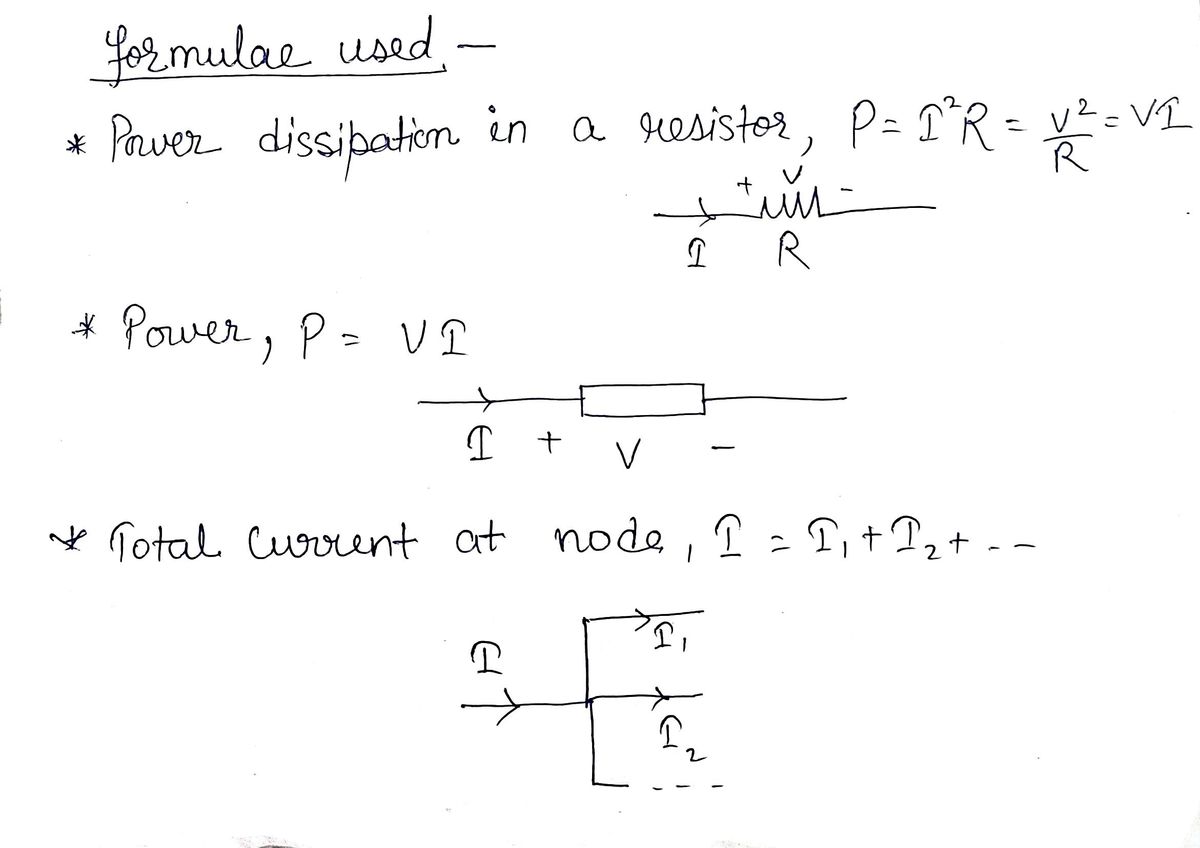 formulae used -
* Power dissipation in a resistor, P = I²R = V²/R = VI
+ V -
I R
* Power, P = VI
I + V -
* Total current at node, I = I₁ + I₂ + ---
I₁
I
I₂
----